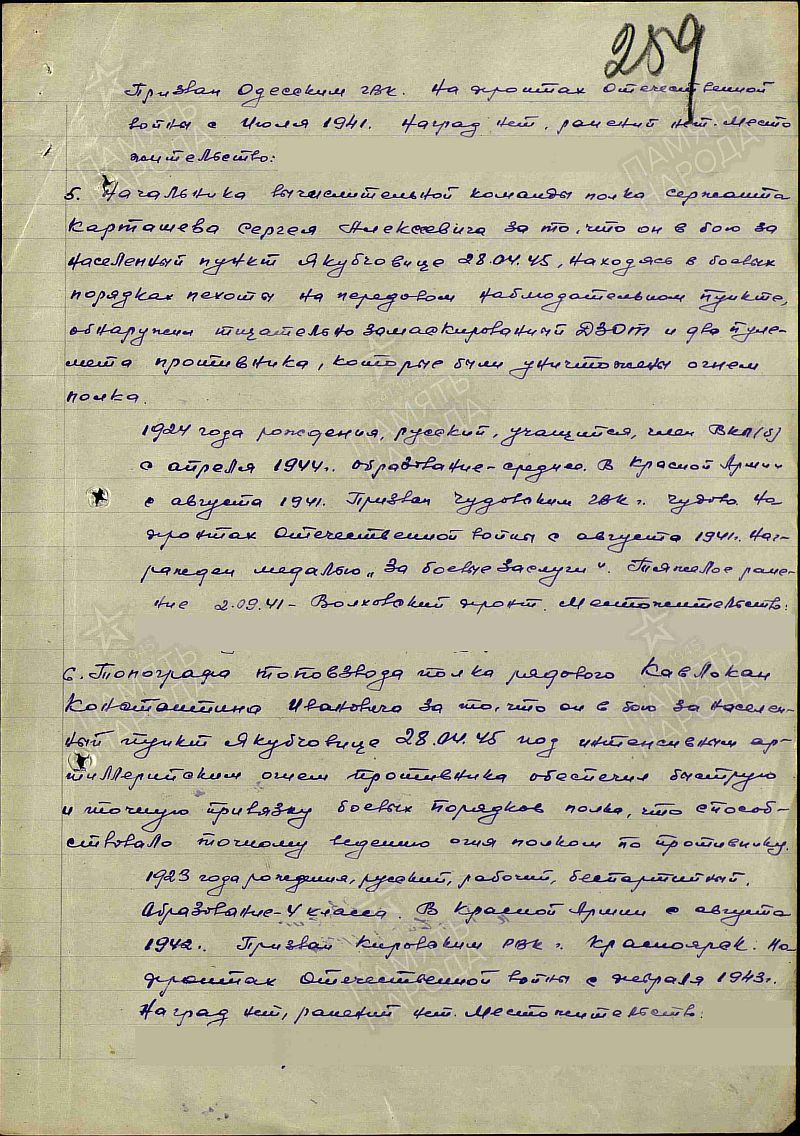 259
Призван Одесским ГВК. На фронтах Отечественной
войны с Июля 1941. Наград нет, ранений нет. Место
жительство:
5. Начальника вычислительной команды полка сержанта
Карташева Сергея Алексеевича за то, что он в бою за
населенный пункт Якубчовице 28.04.45, находясь в боевых
порядках пехоты на передовом наблюдательном пункте,
обнаружил тщательно замаскированный ДЗОТ и два пуле-
мета противника, которые были уничтожены огнем
полка.
1924 года рождения, русский, учащийся, член ВКП(б)
с апреля 1944г. образование-среднее. В Красной Армии
с августа 1941. Призван Чудовским ГВК г. Чудово. На
фронтах Отечественной войны с августа 1941г. Наг-
ражден медалью „За боевые заслуги". Тяжелое ране-
ние 2.09.41 - Волховский фронт. Местожительство:
6. Топографа топовзвода полка рядового Кавлокан
Константина Ивановича за то, что он в бою за населен-
ный пункт Якубчовице 28.04.45 под интенсивным ар-
тиллерийским огнем противника обеспечил быструю
и точную привязку боевых порядков полка, что способ-
ствовало точному ведению огня полком по противнику.
1923 года рождения, русский, рабочий, беспартийный.
Образование-4 класса. В Красной Армии с августа
1942г. Призван Кировским РВК г. Красноярск. На
фронтах Отечественной войны с февраля 1943г.
Наград нет, ранений нет. Местожительство:
ПАМЯТЬ
НАРОДА